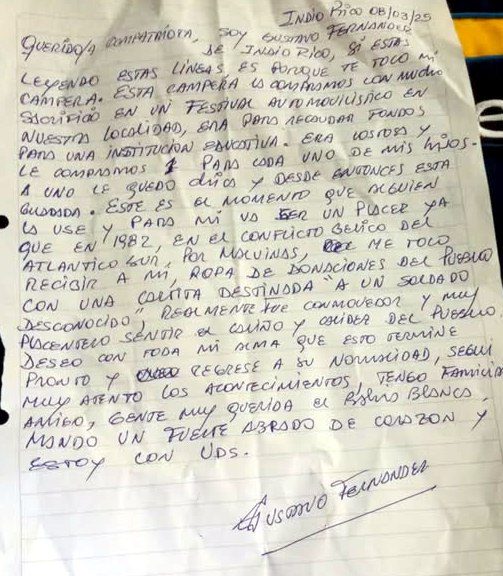 INDIO RICO 08/03/25
QUERIDO/A COMPATRIOTA, SOY GUSTAVO FERNANDEZ
DE INDIO RICO, SI ESTAS
LEYENDO ESTAS LINEAS ES PORQUE TE TOCO MI
CAMPERA. ESTA CAMPERA LA COMPRAMOS CON MUCHO
SACRIFICIO EN UN FESTIVAL AUTOMOVILISTICO EN
NUESTRA LOCALIDAD, ERA PARA RECAUDAR FONDOS
PARA UNA INSTITUCION EDUCATIVA. ERA COSTOSA Y
LE COMPRAMOS 1 PARA CADA UNO DE MIS HIJOS.
A UNO LE QUEDO CHICA Y DESDE ENTONCES ESTA
GUARDADA. ESTE ES EL MOMENTO QUE ALGUIEN
LA USE Y PARA MI VA SER UN PLACER YA
QUE EN 1982, EN EL CONFLICTO BELICO DEL
ATLANTICO SUR, POR MALVINAS, ME TOCO
RECIBIR A MI, ROPA DE DONACIONES DEL PUEBLO
CON UNA CARTITA DESTINADA "A UN SOLDADO
DESCONOCIDO", REALMENTE FUE CONMOVEDOR Y MUY
PLACENTERO SENTIR EL CARIÑO Y CALIDEZ DEL PUEBLO.
DESEO CON TODA MI ALMA QUE ESTO TERMINE
PRONTO Y REGRESE A SU NORMALIDAD, SEGUI
MUY ATENTO LOS ACONTECIMIENTOS, TENGO FAMILIA
AMIGO, GENTE MUY QUERIDA EN BAHIA BLANCA.
MANDO UN FUERTE ABRAZO DE CORAZON Y
ESTOY CON UDS.
GUSTAVO FERNANDEZ